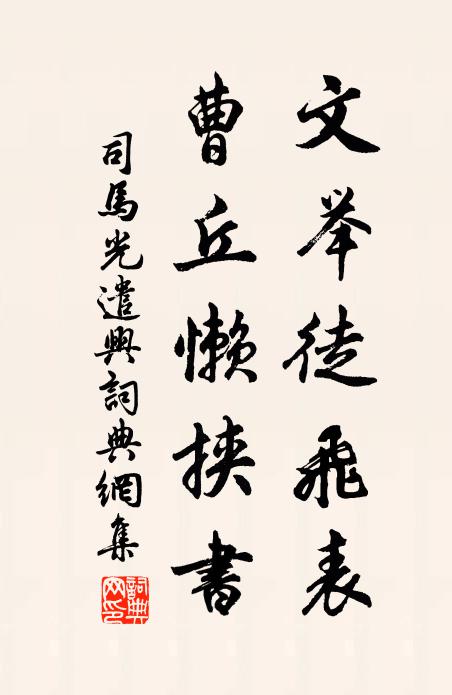 文举徒飛表
曹丘懒挾書
司馬光遣興詞典網集
詞典網印